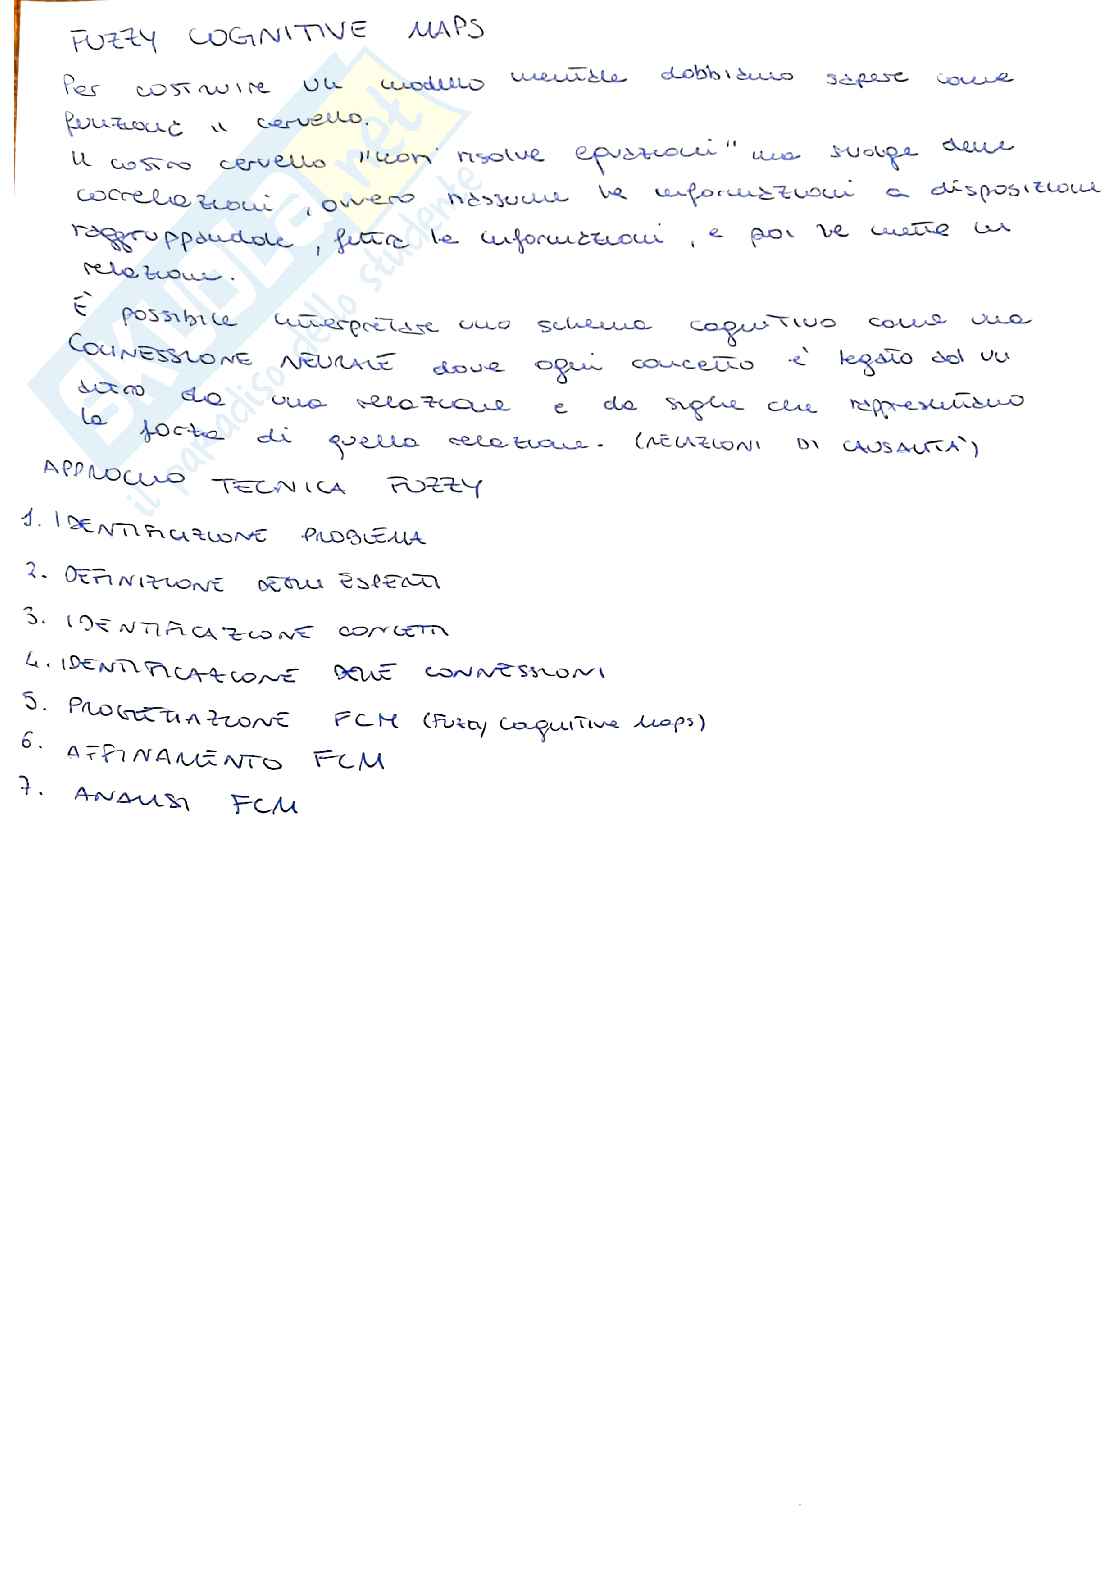 FUZZY COGNITIVE MAPS
Per costruire un modello mentale dobbiamo sapere come
funziona il cervello.
Il nostro cervello "non risolve equazioni" ma svolge delle
correlazioni, ovvero riassume le informazioni a disposizione
raggruppandole, filtra le informazioni, e poi le mette in
relazione.
È possibile interpretare uno schema cognitivo come una
CONNESSIONE NEURALE dove ogni concetto è legato ad un
altro da una relazione e da sigle che rappresentano
la forza di quella relazione. (RELAZIONI DI CAUSALITÀ)
APPROCCIO TECNICA FUZZY
1. IDENTIFICAZIONE PROBLEMA
2. DEFINIZIONE DEGLI ESPERTI
3. IDENTIFICAZIONE CONCETTI
4. IDENTIFICAZIONE DELLE CONNESSIONI
5. PROGETTAZIONE FCM (Fuzzy Cognitive Maps)
6. AFFINAMENTO FCM
7. ANALISI FCM
SKUOLA.net
il paradiso dello studente